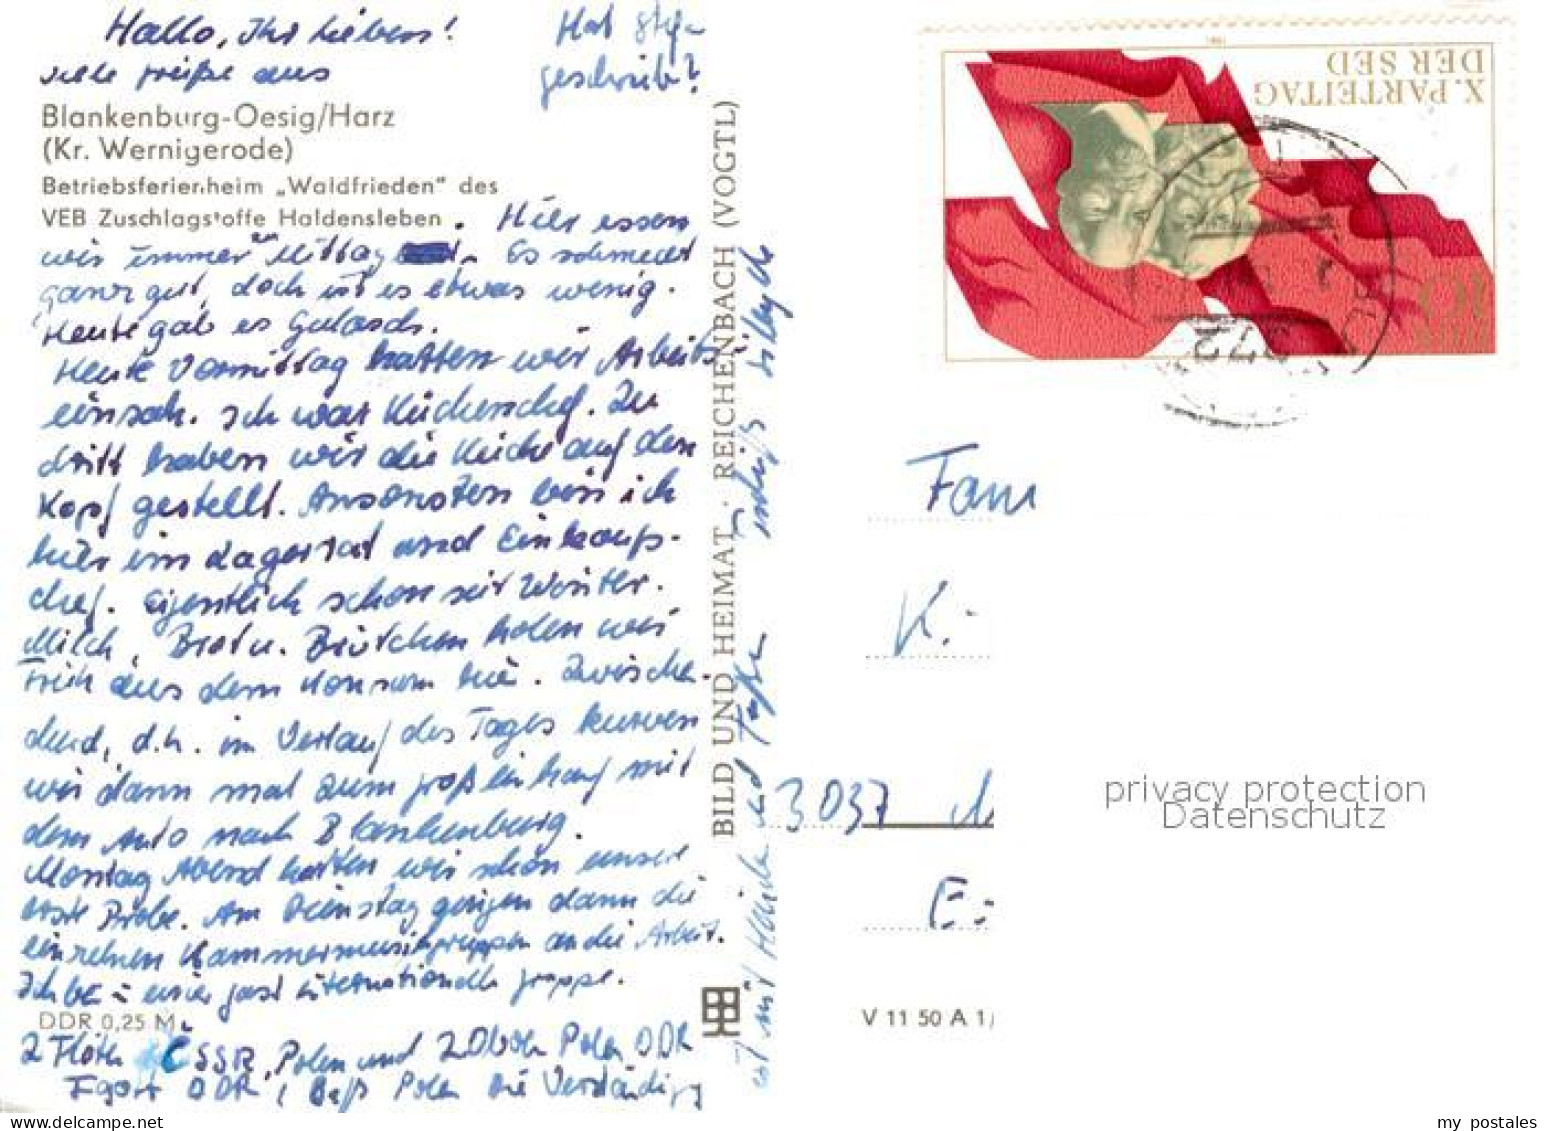 Hallo, Ihr Lieben!
viele Grüße aus
Hat
geschrieb?
Blankenburg-Oesig/Harz
(Kr. Wernigerode)
Betriebsferienheim „Waldfrieden" des
VEB Zuschlagstoffe Haldensleben . Hier essen
wir immer Mittag. Es schmeckt
ganz gut, doch ist es etwas wenig.
Heute gab es Gulasch.
Heute Vormittag hatten wir Arbeits-
einsatz. Ich war Küchenchef. Zu
dritt haben wir die Küche auf den
Kopf gestellt. Ansonsten bin ich
hier im Lagerrat und Einkaufs-
chef. Eigentlich schon seit Winter.
Milch, Brot u. Brötchen holen wir
Früh aus dem Konsum hier. Zwischen-
durch, d.h. im Verlauf des Tages kurven
wir dann mal zum Großeinkauf mit
dem Auto nach Blankenburg.
Montag Abend hatten wir schon unsere
erste Probe. Am Dienstag gingen dann die
einzelnen Kammermusikgruppen an die Arbeit.
Ich bin in einer fast internationalen Gruppe.
DDR 0,25 M
2 Flöten ČSSR, Polen und 2 Oboen Polen DDR
Fagott DDR, Baß Polen Die Verständigung
ist mit Händen und Füßen
BILD UND HEIMAT · REICHENBACH (VOGTL)
X. PARTEITAG
DER SED
1981
10
DDR
372
Fam
K.
3037 M
E
V 11 50 A 1/
privacy protection
Datenschutz
my postales